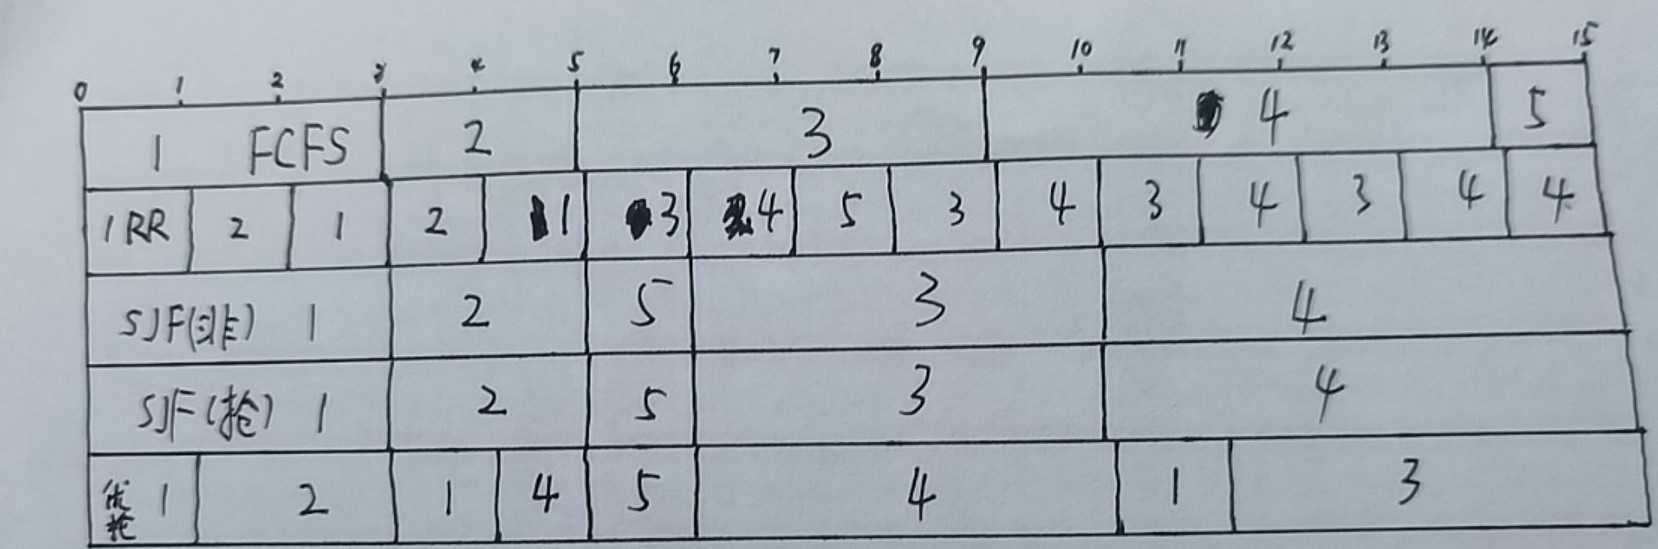 0 1 2 3 4 5 6 7 8 9 10 11 12 13 14 15
1 FCFS 2 3 4 5
1 RR 2 1 2 1 3 4 5 3 4 3 4 3 4 4
SJF(非) 1 2 5 3 4
SJF(抢) 1 2 5 3 4
优抢 1 2 1 4 5 4 1 3